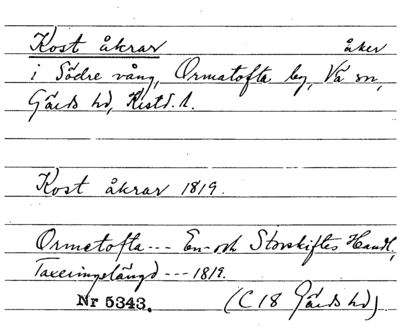 Kost åkrar åker
i Södre vång, Ormatofta by, Vä sn,
Gärds hd, Kristd. l.
Kost åkrar 1819.
Ormetofta --- En- och Storskiftes Handl.,
Taxeringslängd --- 1819.
Nr 5343. (C 18 Gärds hd)